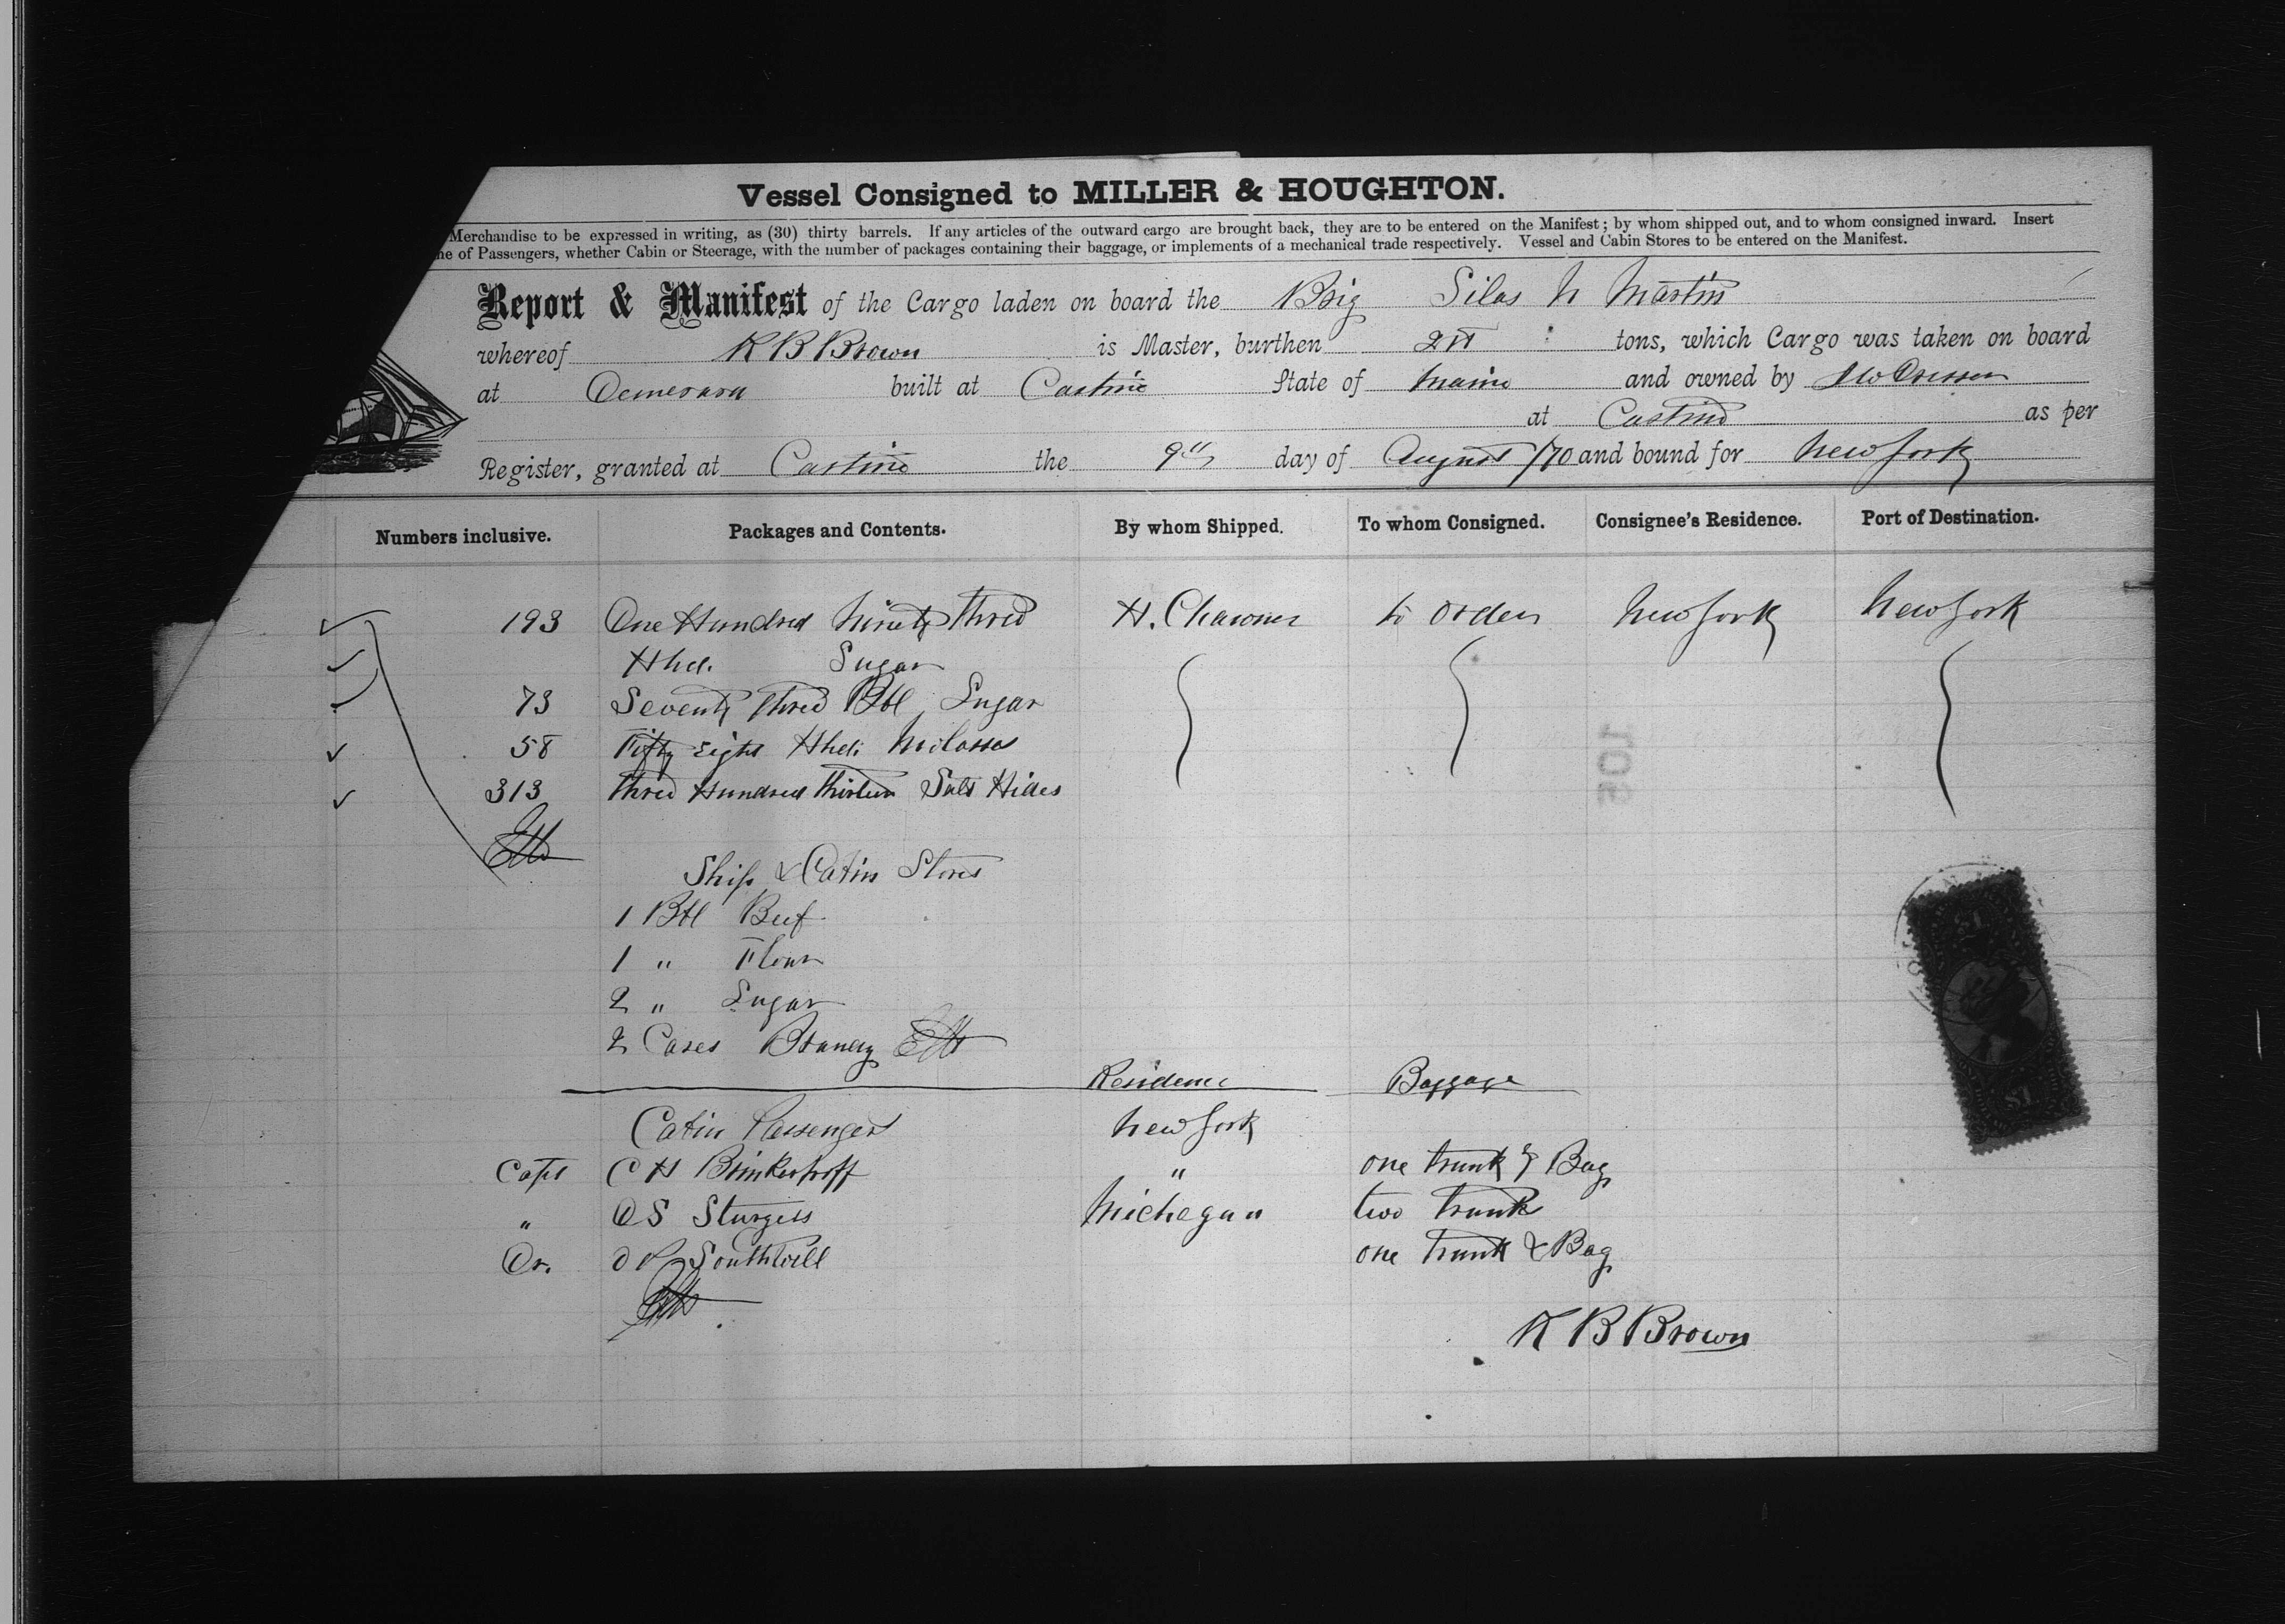 Vessel Consigned to MILLER & HOUGHTON.
Merchandise to be expressed in writing, as (30) thirty barrels. If any articles of the outward cargo are brought back, they are to be entered on the Manifest; by whom shipped out, and to whom consigned inward. Insert
of Passengers, whether Cabin or Steerage, with the number of packages containing their baggage, or implements of a mechanical trade respectively. Vessel and Cabin Stores to be entered on the Manifest.
Report & Manifest of the Cargo laden on board the Brig Silas N Martin
whereof K B Brown is Master, burthen tons, which Cargo was taken on board
at Demerara built at Castine State of Maine and owned by
at Castine as per
Register, granted at Castine the 9th day of August /70 and bound for New York
Numbers inclusive. Packages and Contents. By whom Shipped. To whom Consigned. Consignee's Residence. Port of Destination.
193 One Hundred Ninety three H. Chawner to order New York New York
Hhd. Sugar
73 Seventy three Bbl Sugar
58 Fifty Eight Hhd. Molasses
313 three Hundred thirteen Salt Hides
Ship & Cabin Stores
1 Bbl Beef
1 " Flour
2 " Sugar
2 Cases Brandy
Residence Baggage
Cabin Passengers New York
Capt C H Brinkerhoff " one trunk & Bag
" O S Sturgess Michegan two trunks
Dr. Southwell one trunk & Bag
K B Brown